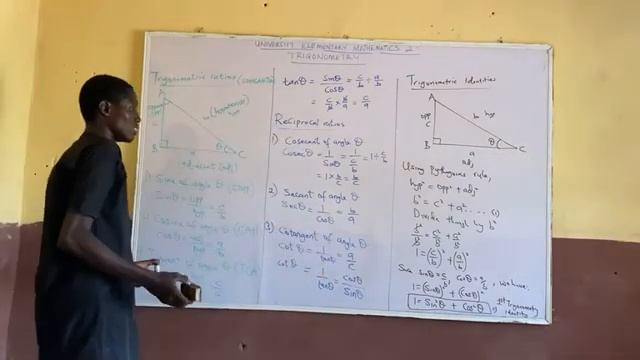 UNIVERSITY ELEMENTARY MATHEMATICS 2
TRIGONOMETRY
Trigonometric ratios
A
b (hypotenuse)
hyp
B
θ
C
a
adjacent (adj)
1) Sine of angle θ
Sinθ = opp/hyp = c/b
Cosine of angle θ
Cosθ = adj/hyp = a/b
of angle θ
tanθ = Sinθ/Cosθ = c/b ÷ a/b
= c/b × b/a = c/a
Reciprocal ratios
1) Cosecant of angle θ
Cosecθ = 1/Sinθ = 1/(c/b) = 1 ÷ c/b
= 1 × b/c = b/c
2) Secant of angle θ
Secθ = 1/Cosθ = b/a
3) Cotangent of angle θ
Cotθ = 1/tanθ = a/c
Cotθ = 1/tanθ = Cosθ/Sinθ
Trigonometric Identities
A
opp
c
b hyp
B
θ
C
a
adj
Using Pythagoras rule,
hyp² = opp² + adj²
b² = c² + a² ... (1)
Divide through by b²
b²/b² = c²/b² + a²/b²
1 = (c/b)² + (a/b)²
Since Sinθ = c/b, Cosθ = a/b, we have:
1 = (Sinθ)² + (Cosθ)²
1 = Sin²θ + Cos²θ
1st Trigonometry
Identity